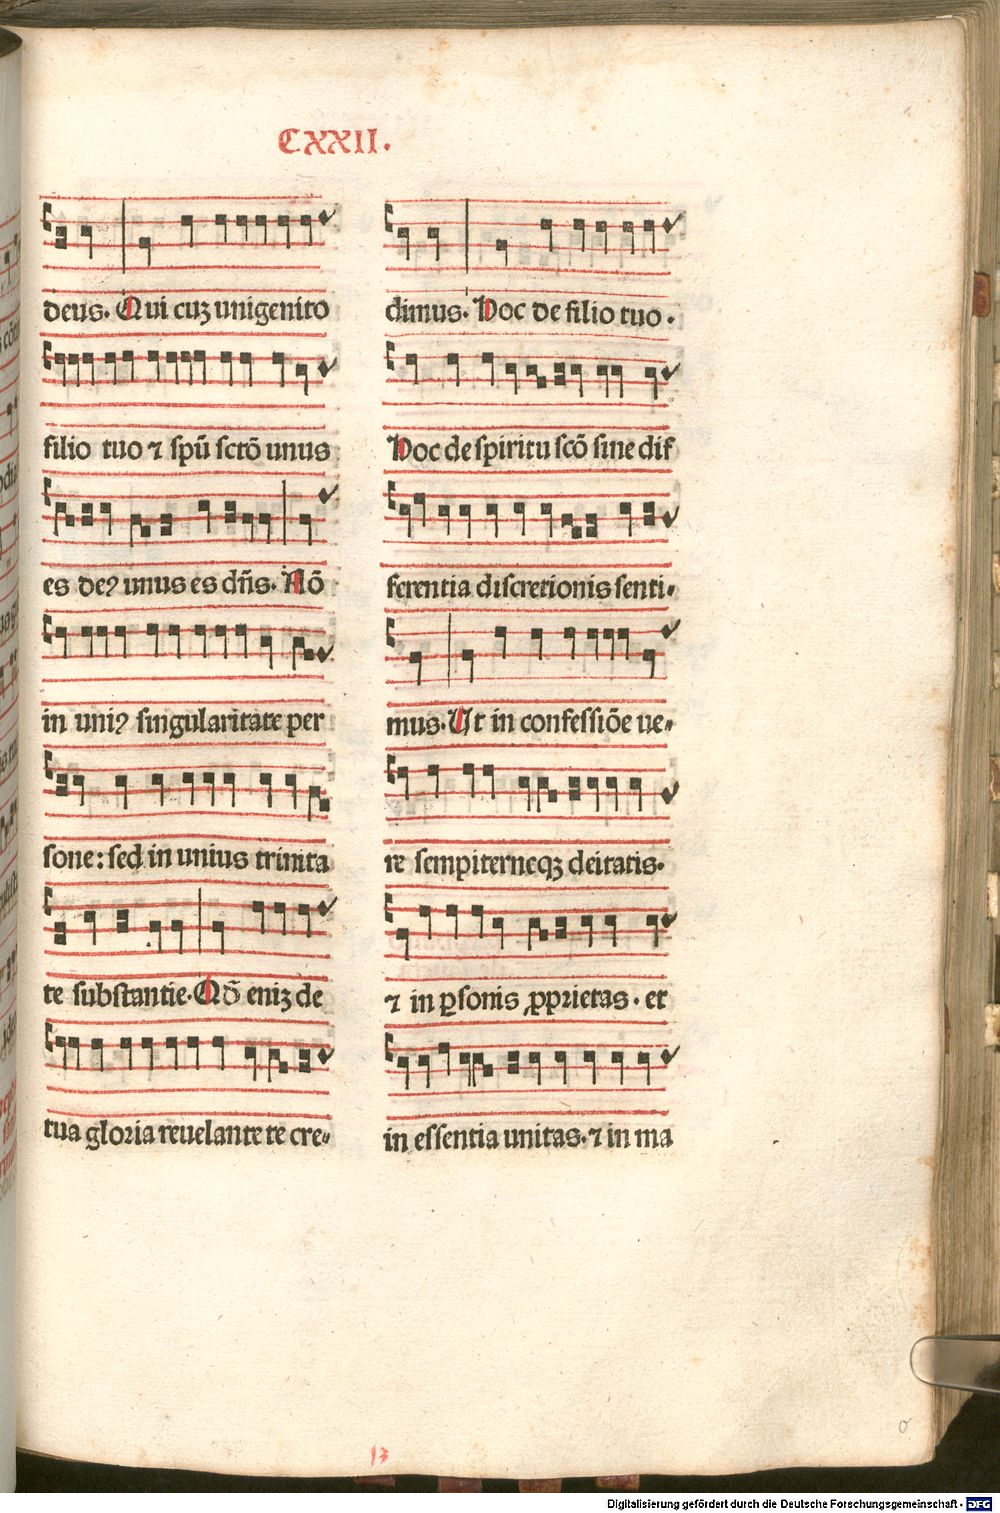 CXXII.
deus. Qui cuꝫ unigenito
filio tuo ⁊ spū sctō unus
es deꝰ unus es dn̄s. Nō
in uniꝰ singularitate per
sone: sed in unius trinita
te substantie. Qđ eniꝫ de
tua gloria reuelante te cre⸗
dimus. Hoc de filio tuo.
Hoc de spiritu scō sine dif
ferentia discretionis senti⸗
mus. Ut in confessiōe ue⸗
re sempiterneqꝫ deitatis.
⁊ in ꝑsonis ꝓprietas. et
in essentia unitas. ⁊ in ma
13
Digitalisierung gefördert durch die Deutsche Forschungsgemeinschaft - DFG